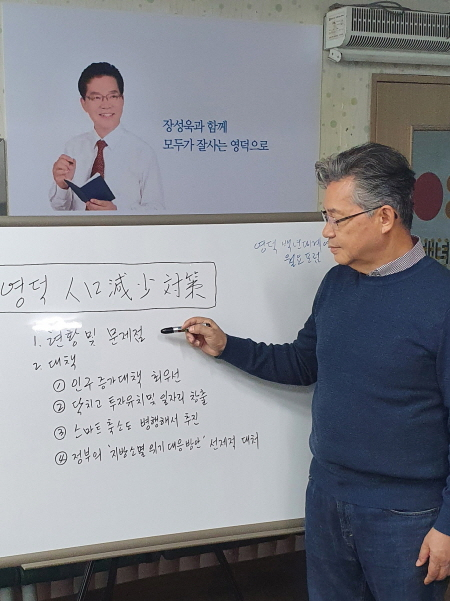 장성욱과 함께
모두가 잘사는 영덕으로
영덕 백년대계
영덕 人口減少 対策
1. 현황 및 문제점
2. 대책
① 인구 증가대책 최우선
② 닥치고 투자유치 및 일자리 창출
③ 스마트 축소도 병행해서 추진
④ 정부의 '지방소멸 위기 대응방안' 선제적 대처